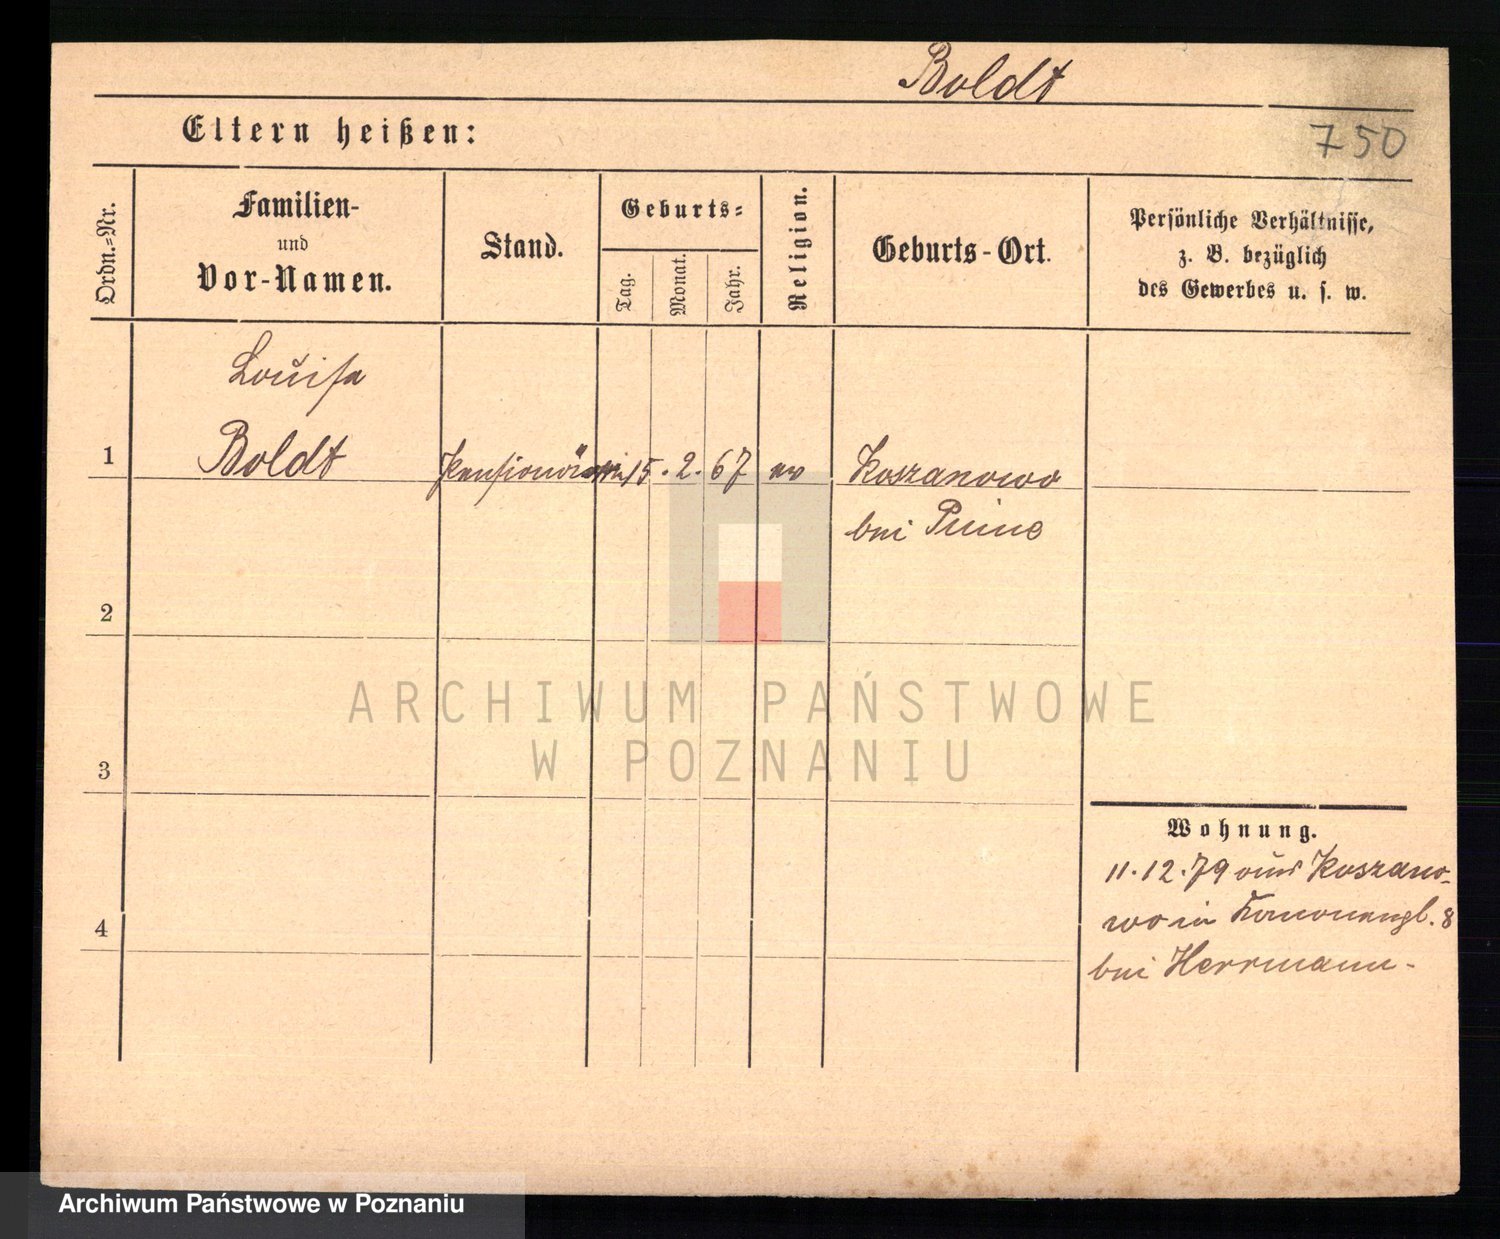 Boldt
Eltern heißen:
750
Ordn.=Nr.
Familien-
und
Vor-Namen.
Stand.
Geburts=
Tag.
Monat.
Jahr.
Religion.
Geburts-Ort.
Persönliche Verhältnisse,
z. B. bezüglich
des Gewerbes u. s. w.
Louisa
1 Boldt Pensionärin 15. 2. 67 ev Koszanowo
bei Pinne
2
ARCHIWUM PAŃSTWOWE
W POZNANIU
3
Wohnung.
11.12.79 aus Koszano-
wo in Kanonengl. 8
bei Herrmann-
4
Archiwum Państwowe w Poznaniu